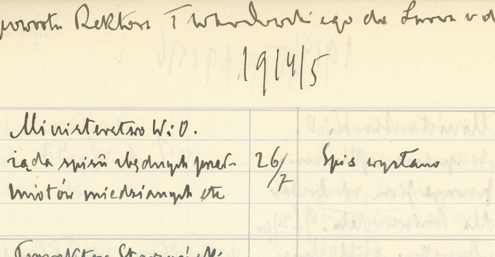 powrotu Rektora Twardowskiego do Lwowa w d
1914/5
Ministerstwo W. O.
żąda spisu zbędnych przed- 26/7 Spis wysłano
miotów miedzianych etc